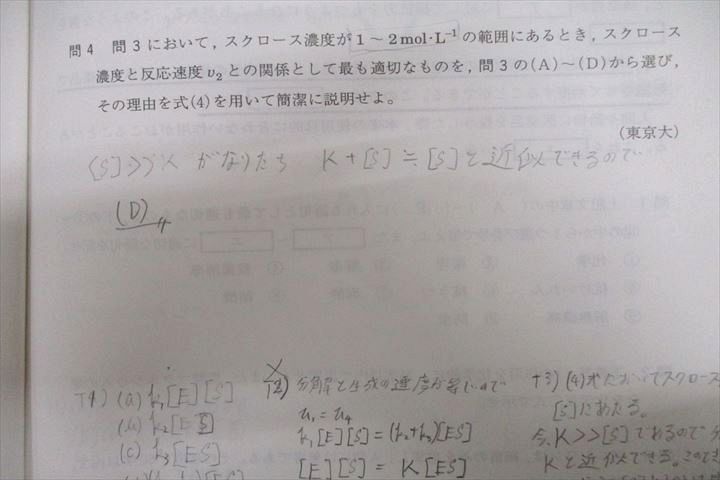 問4 問3において，スクロース濃度が1～2mol·L⁻¹の範囲にあるとき，スクロース
濃度と反応速度v₂との関係として最も適切なものを，問3の(A)～(D)から選び，
その理由を式(4)を用いて簡潔に説明せよ。
(東京大)
[S]>>K がなりたち K+[S]≒[S]と近似できるので、
(D)
(a) k₁[E][S]
(b) k₂[E S]
(c) k₃[ES]
分解と生成の速度が等しいので
u₁=u₄
k₁[E][S]=(k₂+k₃)[ES]
[E][S]=K[ES]
(4)式においてスクロース
[S]にあたる。
今、K>>[S]であるので
Kと近似できる。このとき